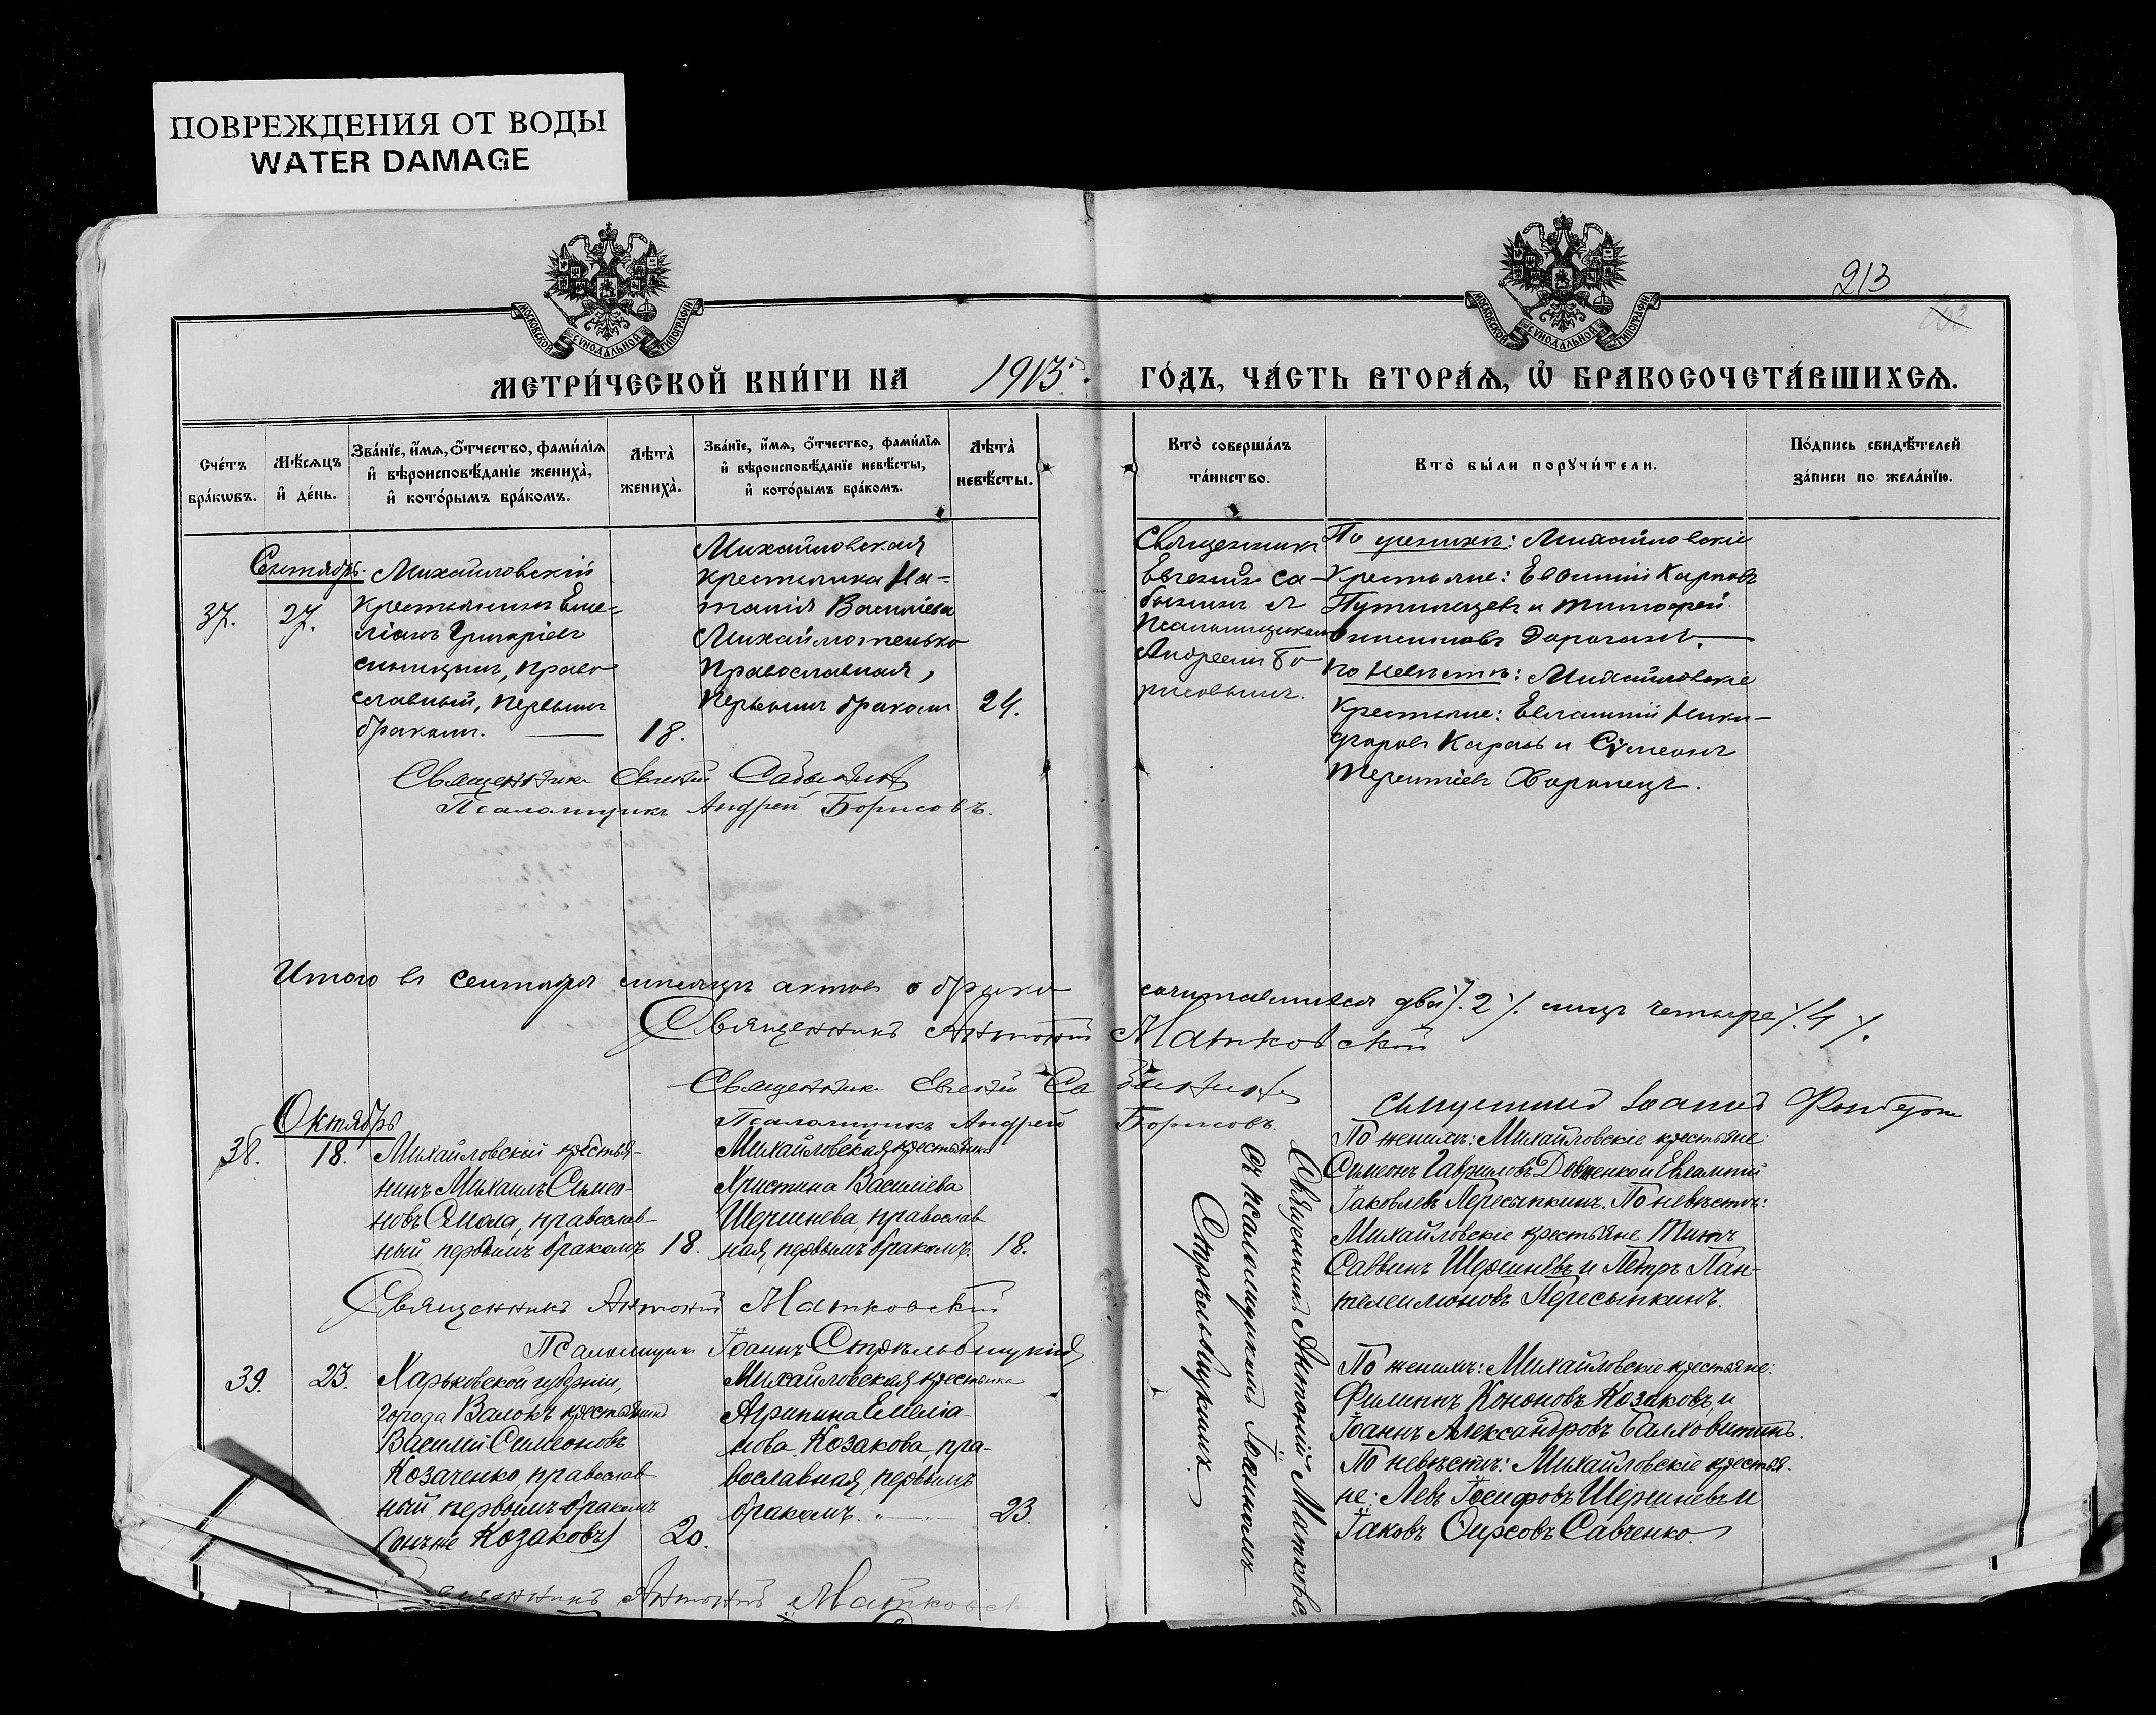 ПОВРЕЖДЕНИЯ ОТ ВОДЫ
WATER DAMAGE
МОСКОВСКОЙ СѴНОДАЛЬНОЙ ТИПОГРАФІИ
МОСКОВСКОЙ СѴНОДАЛЬНОЙ ТИПОГРАФІИ
213
МЕТРИ́ЧЕСКОЙ КНИ́ГИ НА 1913 ГО́ДЪ, ЧА́СТЬ ВТОРА́Ѧ, Ѽ БРАКОСОЧЕТА́ВШИХСѦ.
Сче́тъ бра́кѡвъ.
Мѣ́сѧцъ и҆ де́нь.
Зва́нїе, и҆́мѧ, ѻ҆́тчество, фами́лїѧ и҆ вѣроисповѣ́данїе жениха̀, и҆ кото́рымъ бра́комъ.
Лѣта̀ жениха̀.
Зва́нїе, и҆́мѧ, ѻ҆́тчество, фами́лїѧ и҆ вѣроисповѣ́данїе невѣ́сты, и҆ кото́рымъ бра́комъ.
Лѣта̀ невѣ́сты.
Кто̀ соверша́лъ та́инство.
Кто̀ бы́ли порꙋчи́тели.
По́дпись свидѣ́телей за́писи по жела́нїю.
Сентябрь.
37.
27.
Михайловскій
крестьянинъ Еме-
ліанъ
Синицынъ, право
славный, первымъ
бракомъ.
18.
Михайловская
крестьянка На-
талія Василіева
Михайлотенько
православная,
первымъ бракомъ
24.
Священникъ
Евгеній Са-
бынинъ
псаломщикомъ
Андреем Бо-
рисовымъ.
По женихѣ: Михайловскіе
крестьяне: Евѳимій Карповъ
Путилцевъ и Тимофей
по невѣстѣ: Михайловскіе
крестьяне: Евлампій Ники-
форовъ Карась и Сѵмеонъ
Терентіевъ
Священникъ Евгеній Сабынинъ
Псаломщикъ Андрей Борисовъ.
Итого въ сентябрѣ мѣсяцѣ актовъ о бракосочитавшихся два /. 2 /. лицъ четыре /. 4 /.
Священникъ Антоній Матковскій
Священникъ Евгеній Сабынинъ
Псаломщикъ Андрей Борисовъ.
Октябрь
38.
18.
Михайловскій крестья-
нинъ Михаилъ Симео-
новъ православ-
ный первымъ бракомъ
18.
Михайловская крестьянка
Христина Василіева
Шершнева, православ
ная, первымъ бракомъ.
18.
Священникъ Антоній Матковскій
съ псаломщикомъ Іоанномъ
Стрѣльбицкимъ.
По женихѣ: Михайловскіе крестьяне:
Симеонъ Гавриловъ Довженко и Евлампій
Іаковлевъ Пересыпкинъ. По невѣстѣ:
Михайловскіе крестьяне Титъ
Саввинъ Шершневъ и Петръ Пан-
телеимоновъ Пересыпкинъ.
Священникъ Антоній Матковскій
Псаломщикъ Іоаннъ Стрѣльбицкій
39.
23.
Харьковской губерніи,
города Валокъ крестьянинъ
Василій Симеоновъ
Козаченко, православ
ный первымъ бракомъ
Козаковъ)
20.
Михайловская крестьянка
Агрипина Емеліа-
нова Козакова, пра-
вославная, первымъ
бракомъ.
23.
По женихѣ: Михайловскіе крестьяне:
Филиппъ Кононовъ Козаковъ, и
Іоаннъ Александровъ Балховитинъ.
По невѣстѣ: Михайловскіе крестья-
не: Левъ Іосифовъ Шершневъ и
Іаковъ Ѳирсовъ Савченко.
Священникъ Антоній Матковск